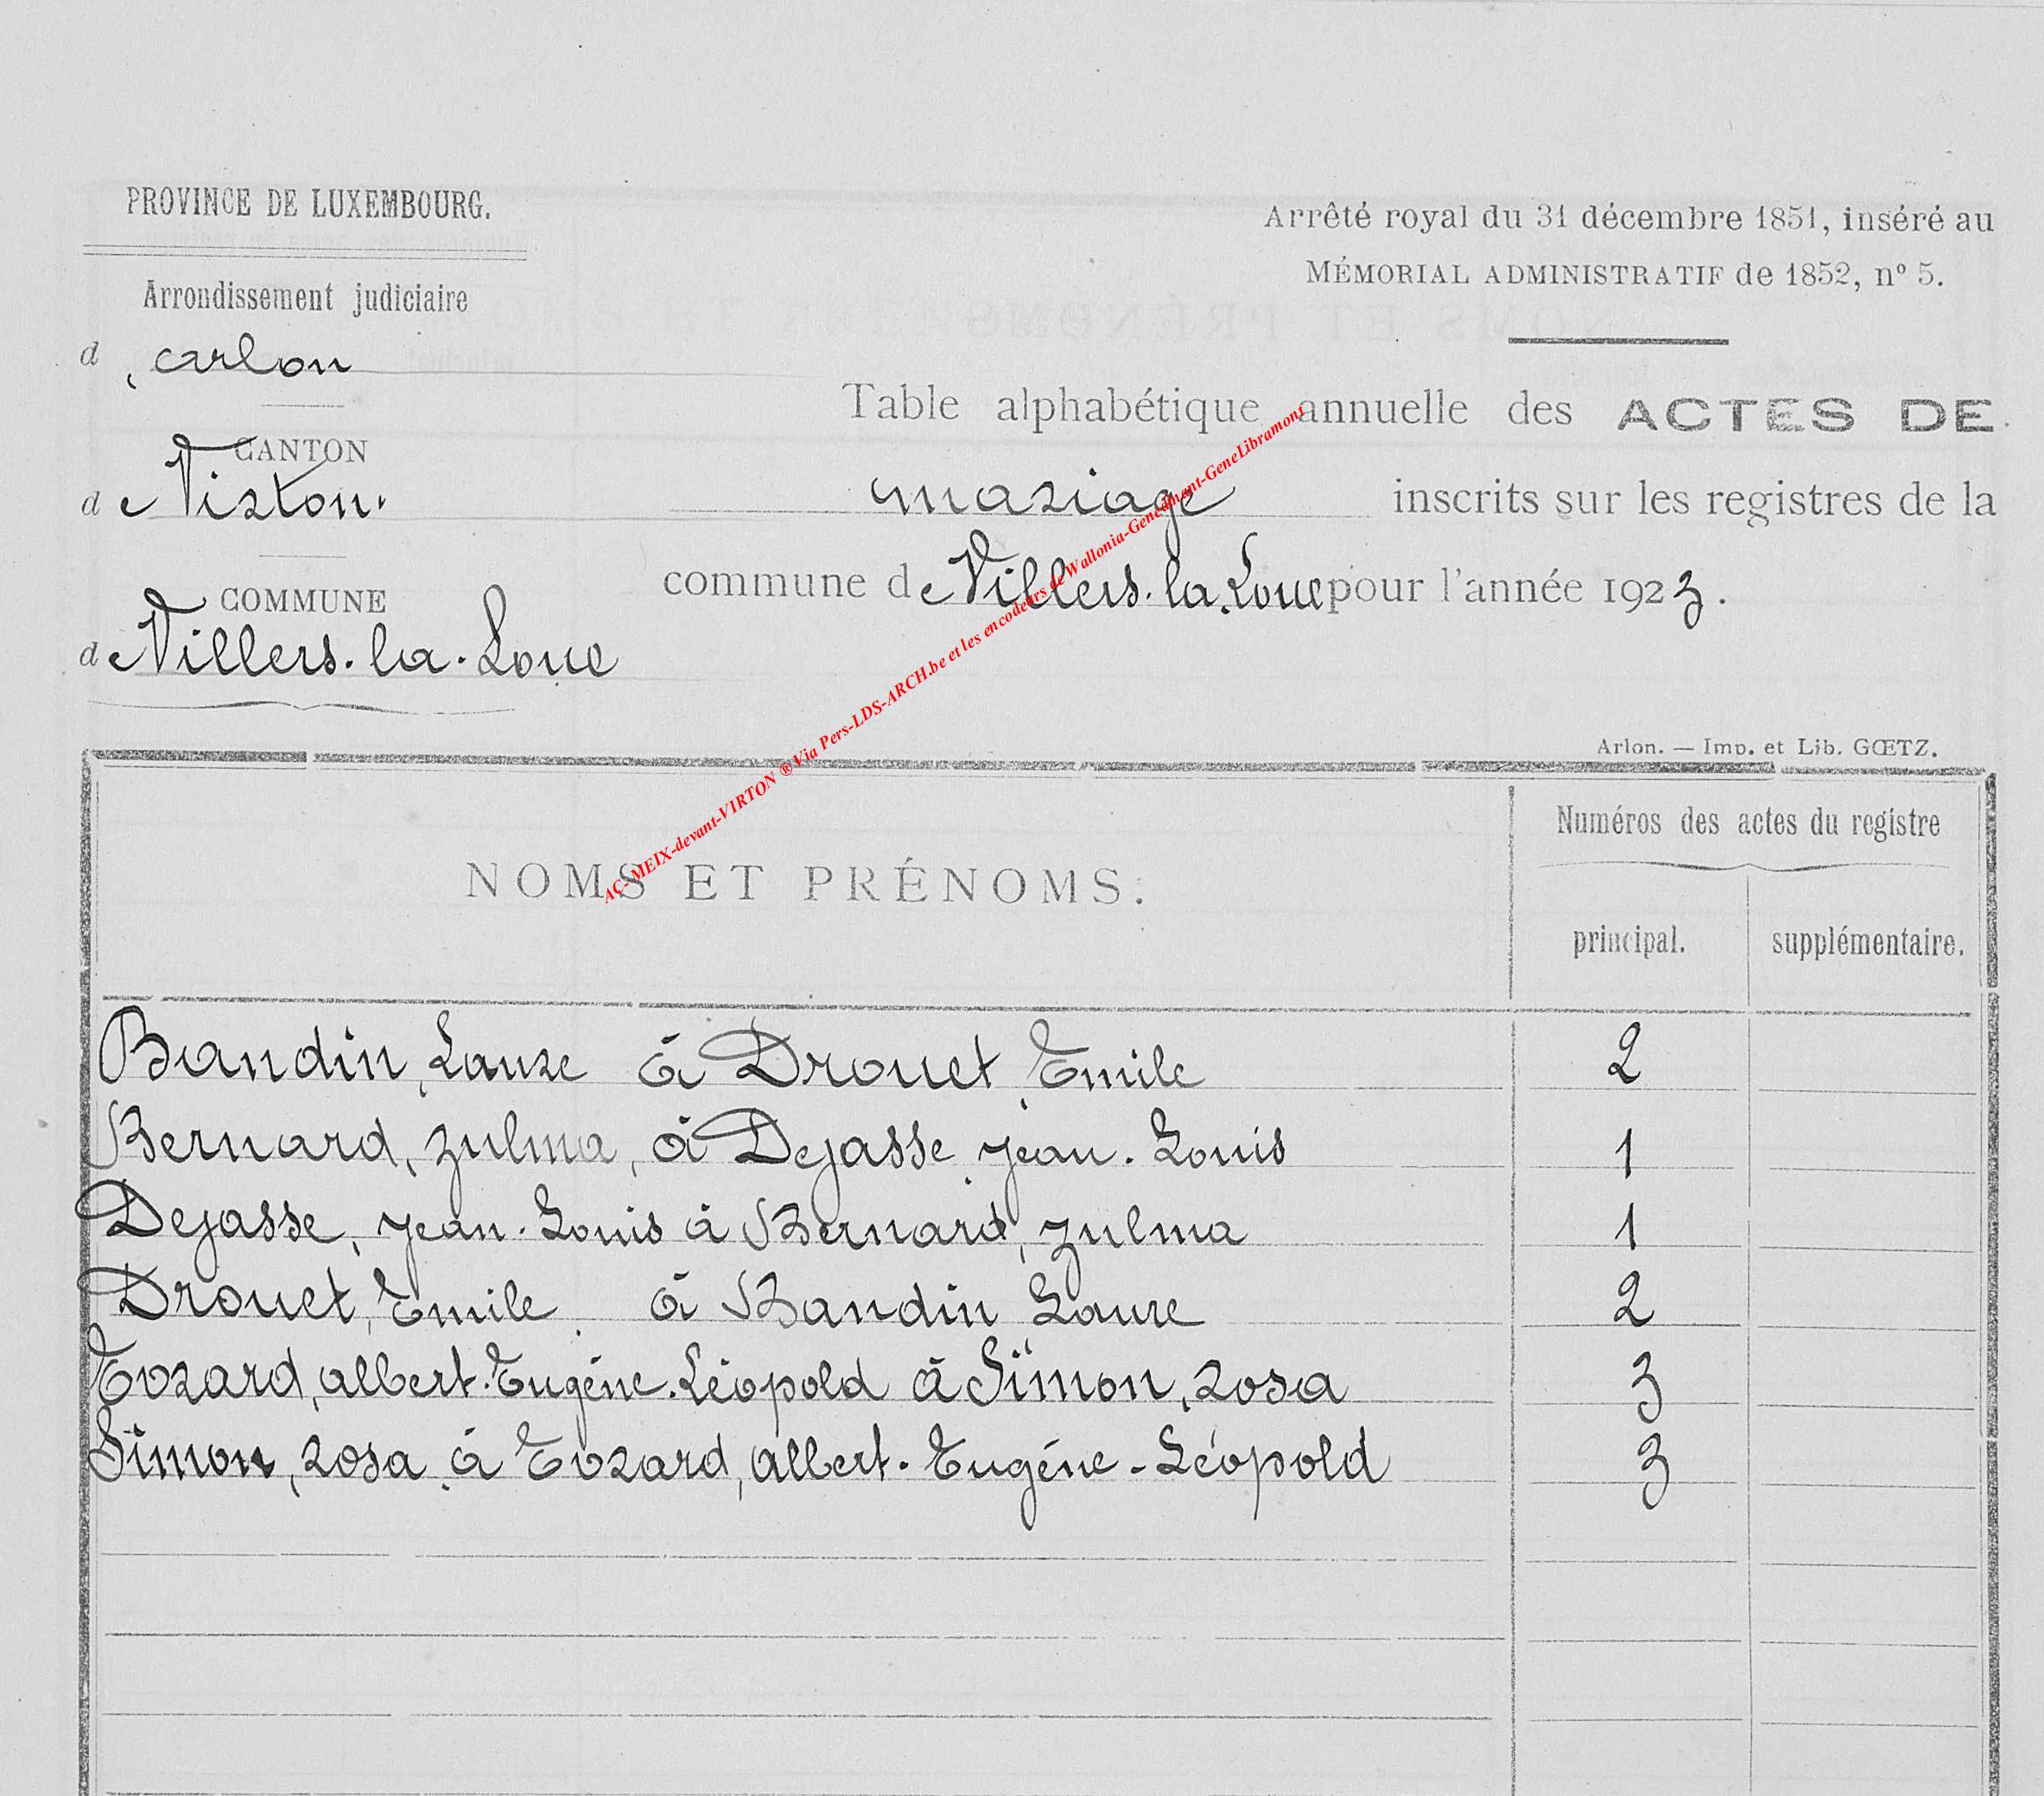 PROVINCE DE LUXEMBOURG.
Arrêté royal du 31 décembre 1851, inséré au
MÉMORIAL ADMINISTRATIF de 1852, nº 5.
Arrondissement judiciaire
d'arlon
CANTON
de Virton.
COMMUNE
de Villers-la-Loue
Table alphabétique annuelle des ACTES DE
mariage inscrits sur les registres de la
commune de Villers-la-Loue pour l'année 1923.
AC-MEIX-devant-VIRTON ® Via Pers-LDS-ARCH.be et les encodeurs de Wallonia-Genedinant-GeneLibramont
Arlon. — Imp. et Lib. GŒTZ.
NOMS ET PRÉNOMS.
Numéros des actes du registre
principal. supplémentaire.
Baudin, Laure à Drouet, Emile 2
Bernard, Zulma, à Dejasse, Jean-Louis 1
Dejasse, Jean-Louis à Bernard, Zulma 1
Drouet, Emile à Baudin Laure 2
Evrard, albert-Eugène-Léopold à Simon, rosa 3
Simon, rosa à Evrard, albert-Eugène-Léopold 3